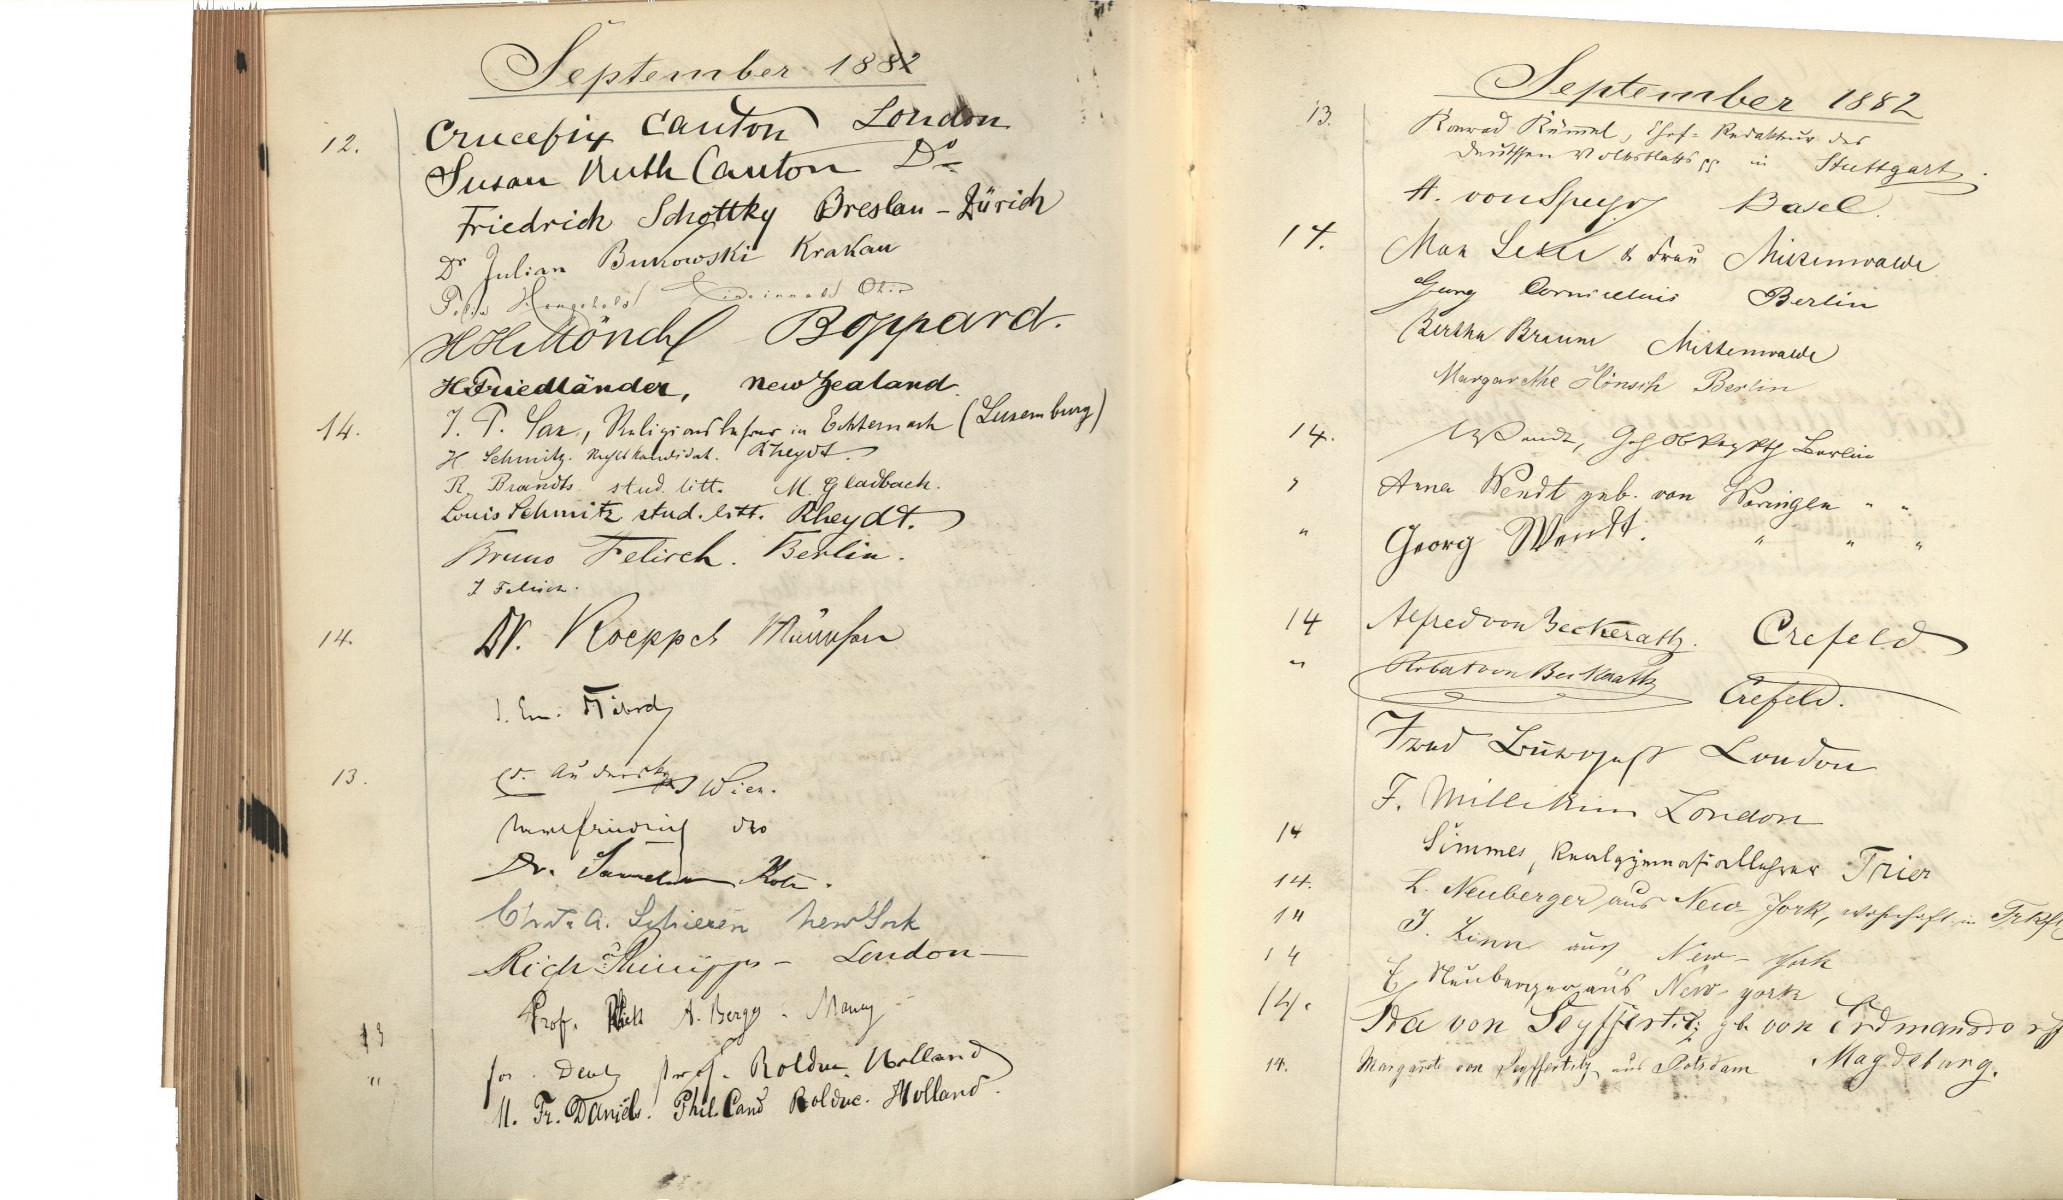 September 1882
12. Crucefix Canton London
Susan Ruth Canton Do
Friedrich Schottky Breslau – Zürich
Dr Julian Bukowski Krakau
Cincinnati Ohio
HH Mönch Boppard.
H Friedländer, New Zealand.
14. J. P. Sax, Religionslehrer in Echternach (Luxemburg)
H. Schmitz. Rechtskandidat. Rheydt.
R. Brandts stud. litt. M. Gladbach.
Louis Schmitz stud. litt. Rheydt.
Bruno Felisch. Berlin.
J Felisch.
14. Dr. Koeppel München
J. Em.
13. Wien.
dto
Dr. Samelson Köln.
Chas. A. Schieren New York
Rich Phillipps – London –
Prof. A. Bergy. Nancy
13 prof. Rolduc. Holland
" M. Fr. Daniels. Phil. Cand Rolduc. Holland.
September 1882
13. Konrad Kümmel, Chef-Redakteur des
deutschen Volksblatts in Stuttgart.
A. von Speyr Basel.
14. Max & Frau Mittenwalde
Georg Cornicelius Berlin
Bertha Braune Mittenwalde
Margarethe Hönsch Berlin
14. Wendt, Berlin
" Anna Wendt geb. von Weringen " "
" Georg Wendt. " " "
14 Alfred von Beckerath. Crefeld
" Robert von Beckerath Crefeld.
Fred Burgess London
F. Millikin London
14 Simmes, Realgymnasiallehrer Trier
14. L. Neuberger aus New-York, wohnhaft in
14 J. Zinn aus New-York
14 E Neuberger aus New-York
14. Ida von Seyffertitz gb. von Erdmansdorff
14. Margarete von Seyffertitz aus Potsdam Magdeburg.